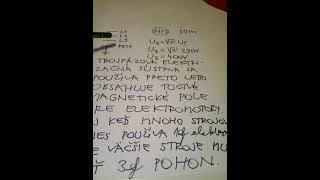 L1
L2
L3
PEN
NN 50Hz
Uz = √3 · Uf
Uz = √3 · 230V
Uz = 400V
TROJFÁZOVÁ ELEKTRI-
ZAČNÁ SÚSTAVA SA
POUŽÍVA PRETO LEBO
OBSAHUJE TOČIVÉ
MAGNETICKÉ POLE
PRE ELEKTROMOTORY.
KEĎ MNOHO STROJOV
POUŽÍVA 1f
VÄČŠIE STROJE MU
3f POHON.